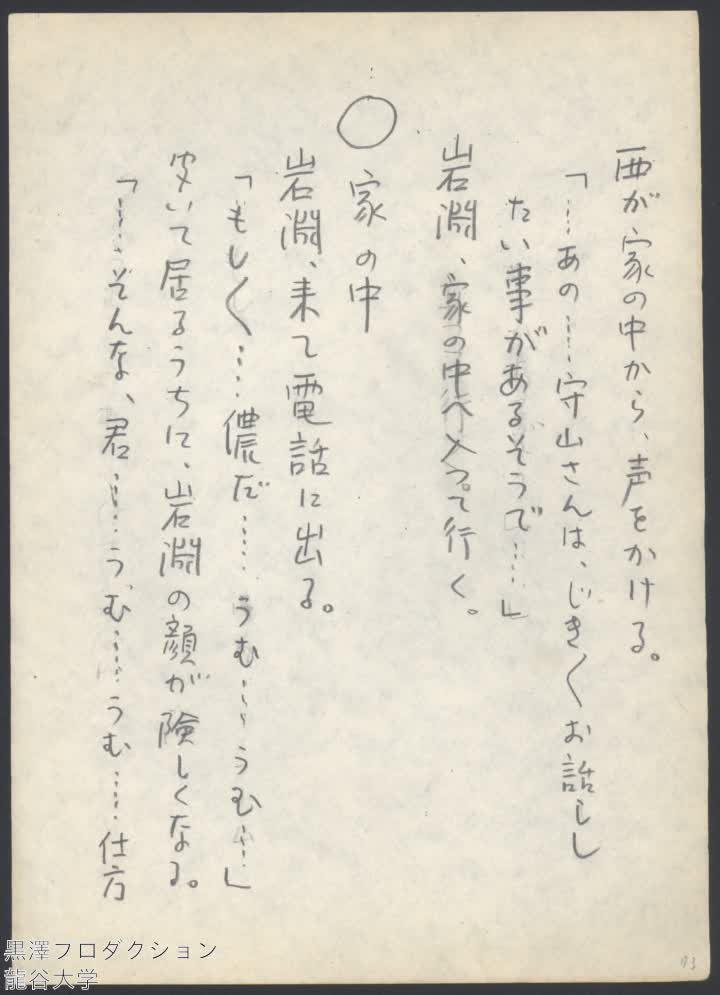 西が家の中から、声をかける。
「…あの……守山さんは、じき〳〵お話しし
たい事があるそうで……」
岩淵、家の中へ入って行く。
○ 家の中
岩淵、来て電話に出る。
「もし〳〵……儂だ……うむ……うむ……」
聞いて居るうちに、岩淵の顔が険しくなる。
「……そんな、君……うむ……うむ……仕方
黒澤プロダクション
龍谷大学